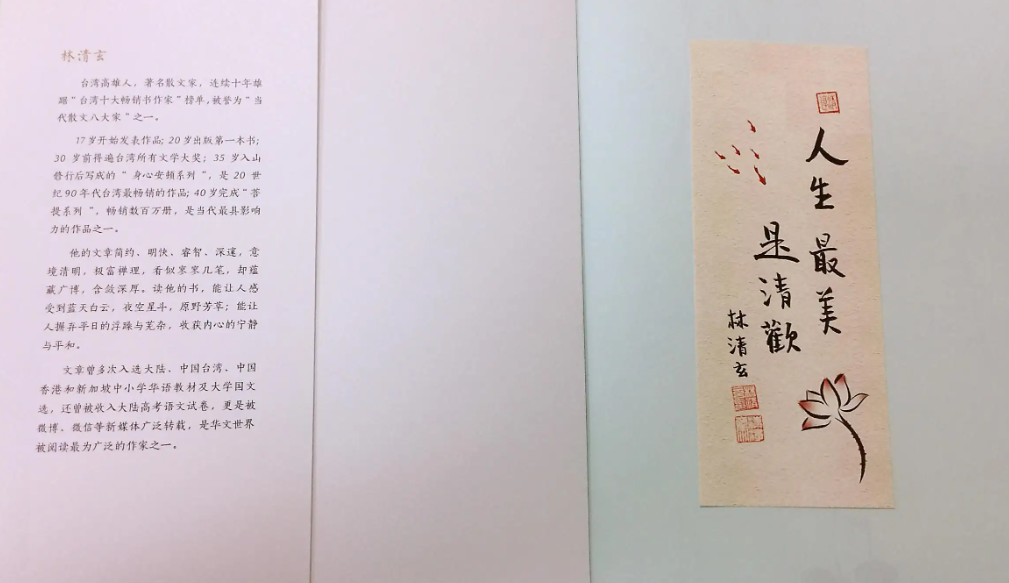 林清玄
台湾高雄人，著名散文家，连续十年雄
踞“台湾十大畅销书作家”榜单，被誉为“当
代散文八大家”之一。
17岁开始发表作品；20岁出版第一本书；
30 岁前得遍台湾所有文学大奖；35 岁入山
修行后写成的“身心安顿系列”，是 20 世
纪90年代台湾最畅销的作品；40岁完成“菩
提系列”，畅销数百万册，是当代最具影响
力的作品之一。
他的文章简约、明快、睿智、深邃，意
境清明，极富禅理，看似寥寥几笔，却蕴
藏广博，含敛深厚。读他的书，能让人感
受到蓝天白云，夜空星斗，原野芳草；能让
人摒弃平日的浮躁与芜杂，收获内心的宁静
与平和。
文章曾多次入选大陆、中国台湾、中国
香港和新加坡中小学华语教材及大学国文
选，还曾被收入大陆高考语文试卷，更是被
微博、微信等新媒体广泛转载，是华文世界
被阅读最为广泛的作家之一。
人生最美
是清歡
林清玄